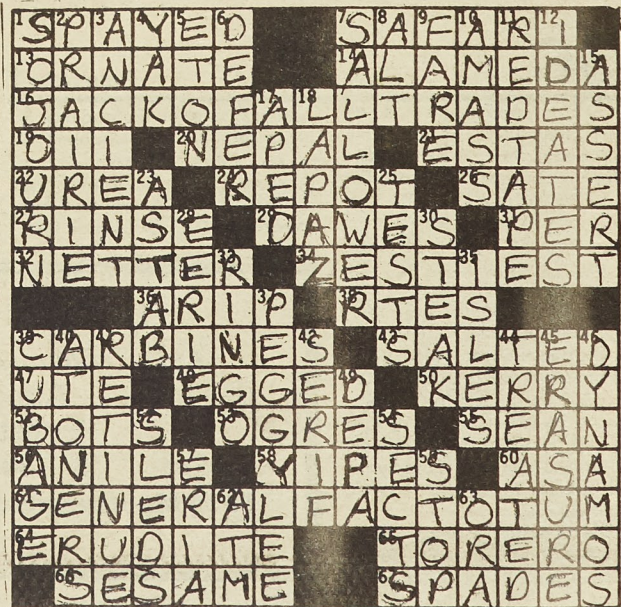 SPAYED SAFARI
ORNATE ALAMEDA
JACKOFALLTRADES
OII NEPAL ESTAS
UREA REPOT SATE
RINSE DAWES PER
NETTER ZESTIEST
ARIP RTES
CARBINES SALTED
UTE EGGED KERRY
BOTS OGRES SEAN
ANILE YIPES ASA
GENERALFACTOTUM
ERUDITE TORERO
SESAME SPADES